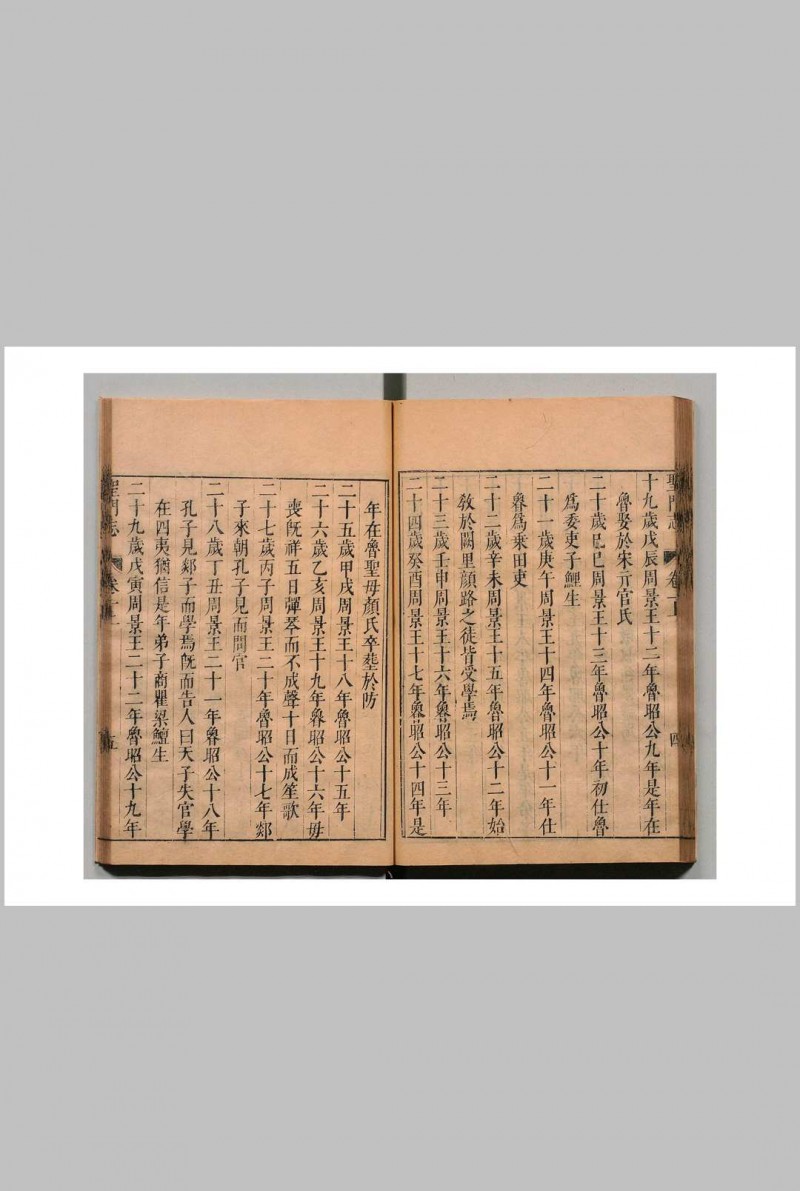 聖門志
四
十九歲戊辰周景王十二年魯昭公九年是年在
魯娶於宋亓官氏
二十歲己巳周景王十三年魯昭公十年初仕魯
爲委吏子鯉生
二十一歲庚午周景王十四年魯昭公十一年仕
魯爲乗田吏
二十二歲辛未周景王十五年魯昭公十二年始
敎於闕里顔路之徒皆受學焉
二十三歲壬申周景王十六年魯昭公十三年
二十四歲癸酉周景王十七年魯昭公十四年是
年在魯聖母顔氏卒塟於防
二十五歲甲戌周景王十八年魯昭公十五年
二十六歲乙亥周景王十九年魯昭公十六年毋
喪旣祥五日彈琴而不成聲十日而成笙歌
二十七歲丙子周景王二十年魯昭公十七年郯
子來朝孔子見而問官
二十八歲丁丑周景王二十一年魯昭公十八年
孔子見郯子而學焉旣而告人曰天子失官學
在四夷猶信是年弟子商瞿梁鱣生
二十九歲戊寅周景王二十二年魯昭公十九年
聖門志
五